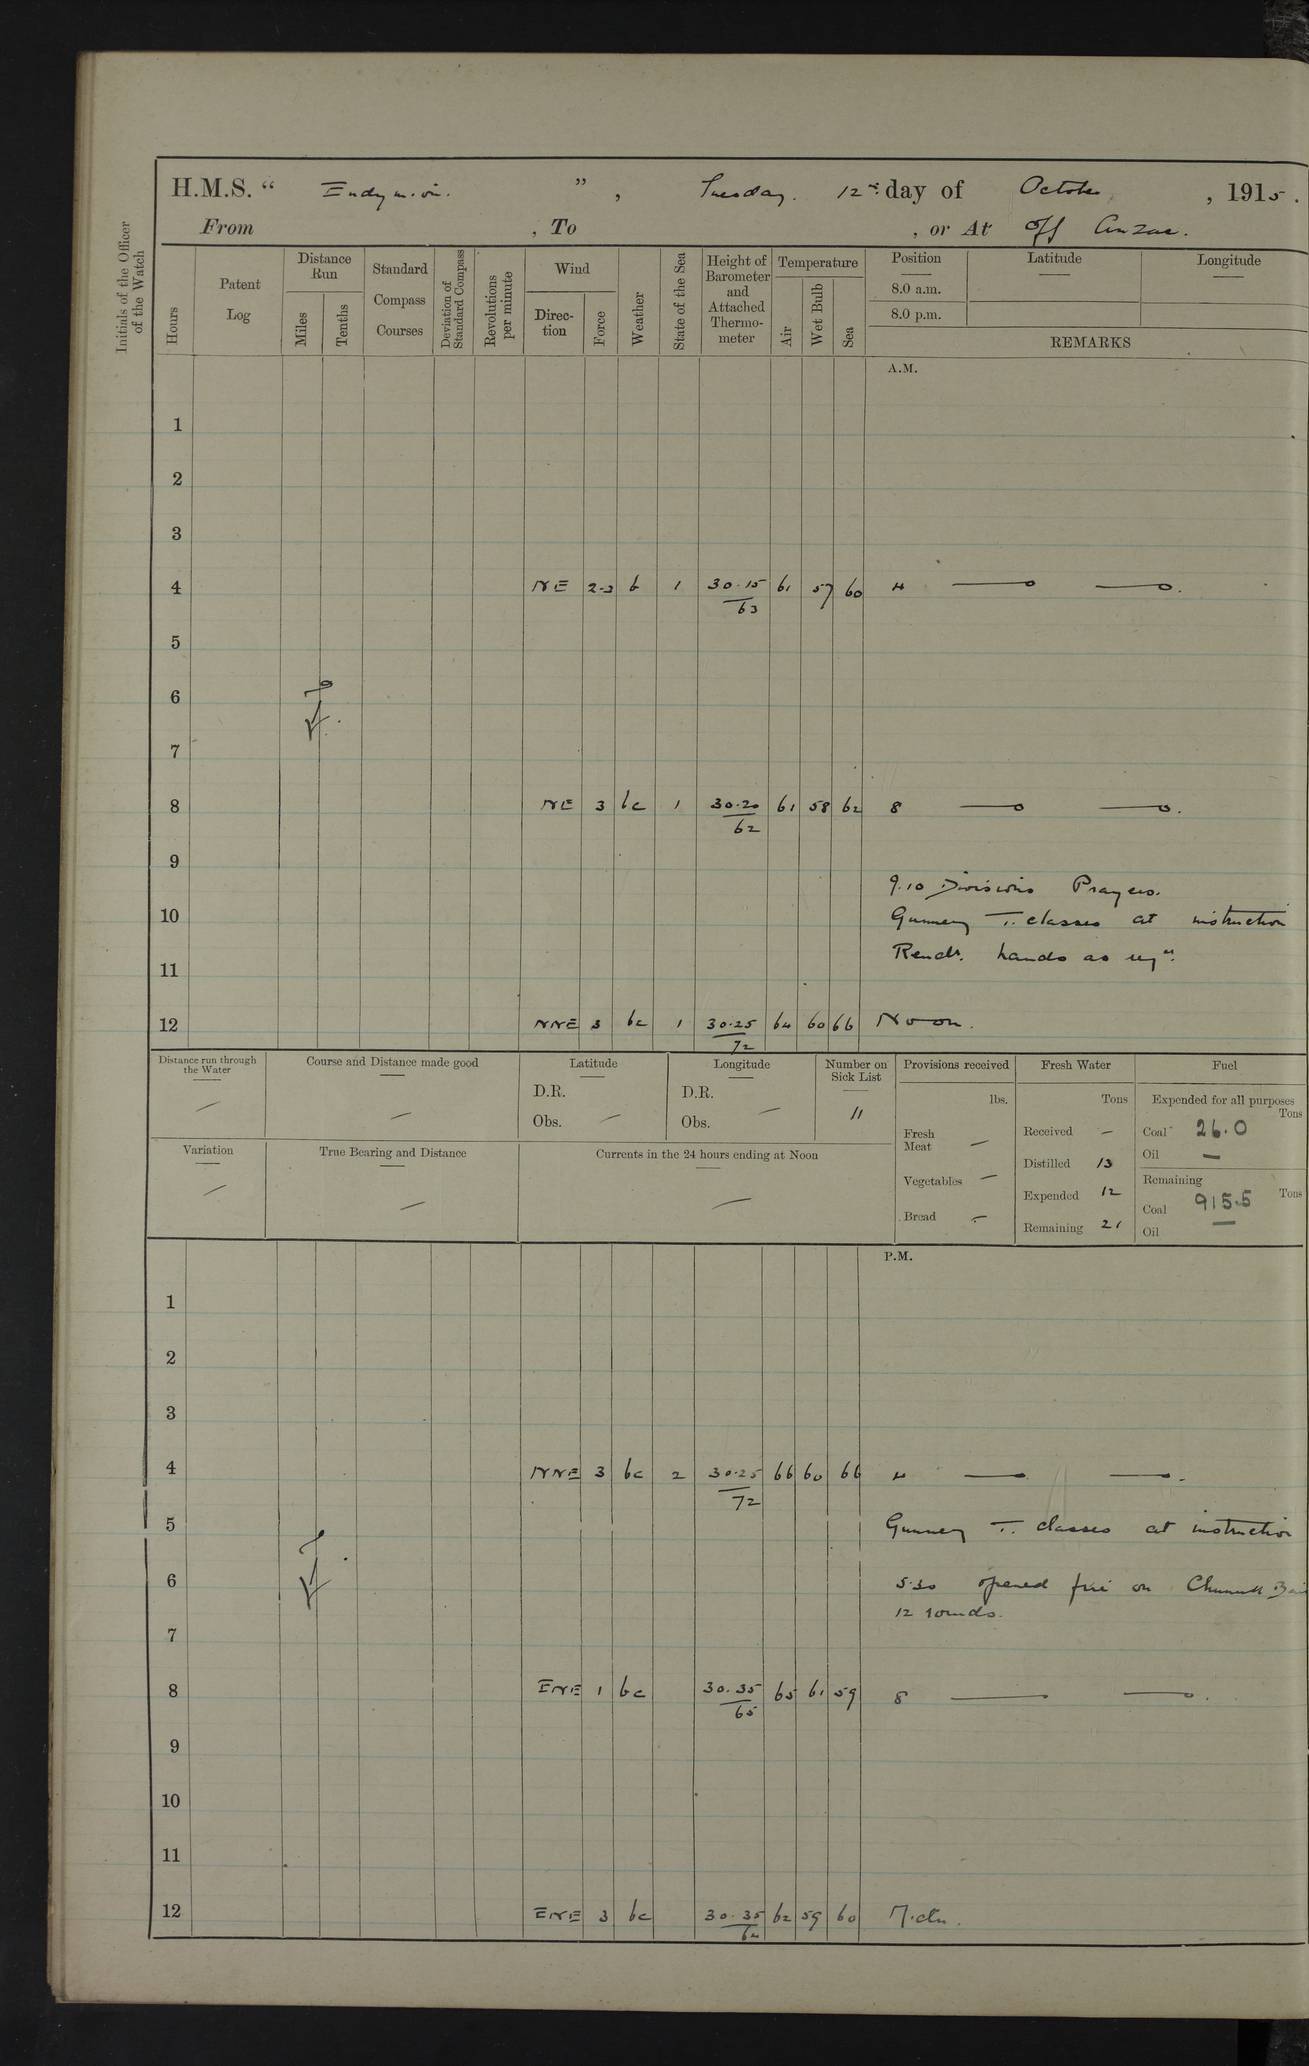 H.M.S. " Endymion. " , Tuesday. 12th day of October , 1915 .
From , To , or At Off Anzac.
Initials of the Officer of the Watch
Hours
Patent Log
Distance Run
Miles
Tenths
Standard Compass Courses
Deviation of Standard Compass
Revolutions per minute
Wind
Direc-tion
Force
Weather
State of the Sea
Height of Barometer and Attached Thermo-meter
Temperature
Air
Wet Bulb
Sea
Position
8.0 a.m.
8.0 p.m.
Latitude
Longitude
REMARKS
A.M.
1
2
3
4 NE 2-3 b 1 30.15/63 61 57 60 4
5
6
7
8 NE 3 bc 1 30.20/62 61 58 62 8
9
9.10 Divisions Prayers.
10 Gunnery T. classes at instruction
Remdr. hands as req'd.
11
12 NNE 3 bc 1 30.25/72 64 60 66 Noon.
Distance run through the Water —
Course and Distance made good —
Latitude
D.R.
Obs. —
Longitude
D.R.
Obs. —
Number on Sick List
11
Variation —
True Bearing and Distance —
Currents in the 24 hours ending at Noon —
Provisions received
lbs.
Fresh Meat —
Vegetables —
Bread —
Fresh Water
Tons
Received —
Distilled 13
Expended 12
Remaining 21
Fuel
Expended for all purposes
Tons
Coal 26.0
Oil —
Remaining
Tons
Coal 915.5
Oil —
P.M.
1
2
3
4 NNE 3 bc 2 30.25/72 66 60 66 4
5 Gunnery T. classes at instruction
6 5.30 opened fire on Chunuk Bair
12 rounds.
7
8 ENE 1 bc 30.35/65 65 61 59 8
9
10
11
12 ENE 3 bc 30.35/64 62 59 60 Midn.